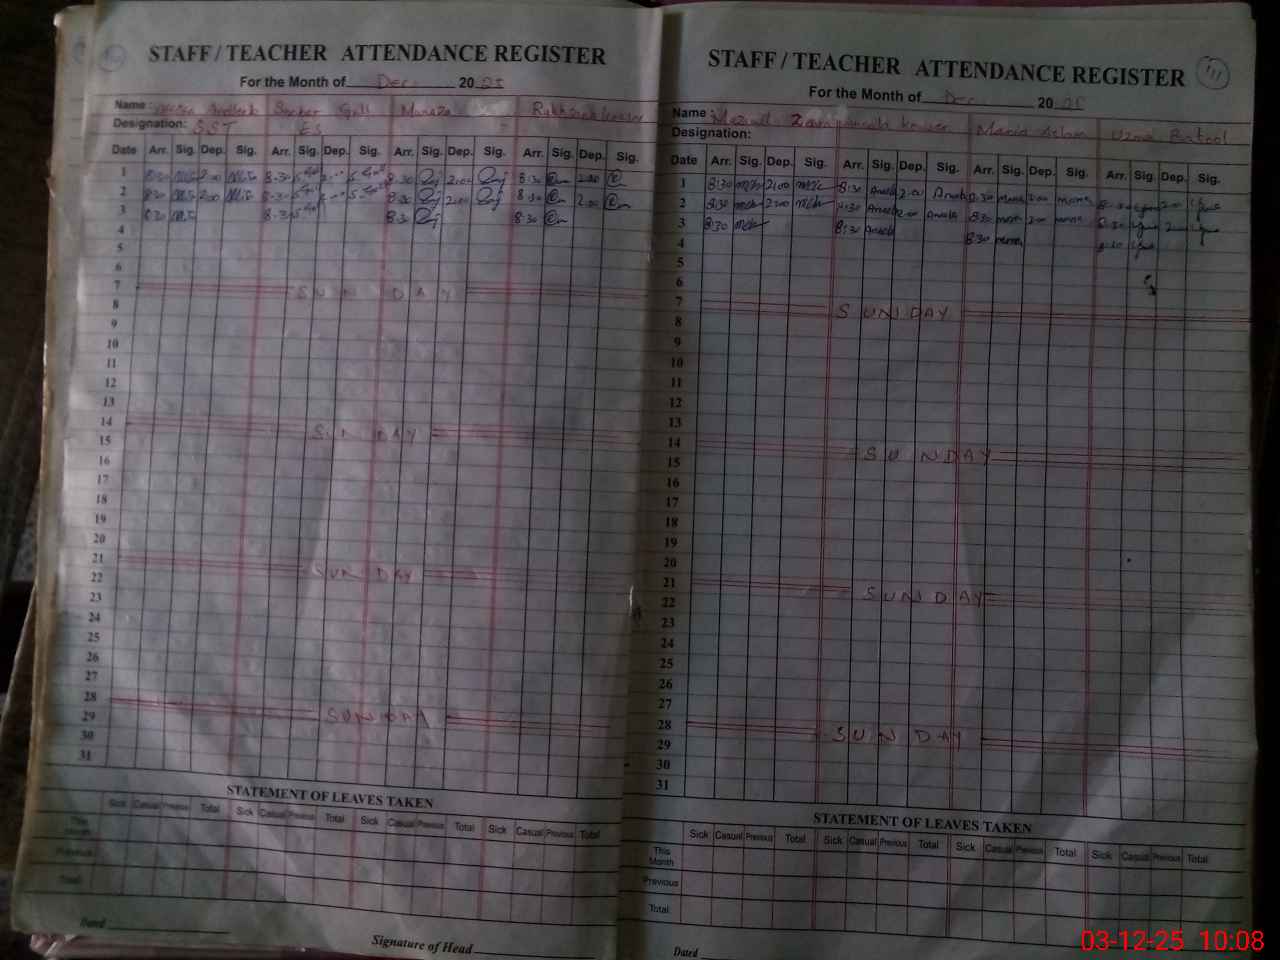 STAFF / TEACHER ATTENDANCE REGISTER
For the Month of Dec. 2025
Name : Gull Munaza Rukhsana kouser
Designation: SST ES
Date Arr. Sig. Dep. Sig. Arr. Sig. Dep. Sig. Arr. Sig. Dep. Sig. Arr. Sig. Dep. Sig.
1 8:30 2:00 8:30 8:30 2:00 8:30 2:00
2 8:30 2:00 8:30 8:30 2:00 8:30 2:00
3 8:30 8:30 8:30 8:30
4
5
6
7 SUNDAY
8
9
10
11
12
13
14 SUNDAY
15
16
17
18
19
20
21 SUNDAY
22
23
24
25
26
27
28 SUNDAY
29
30
31
STATEMENT OF LEAVES TAKEN
Sick Casual Previous Total Sick Casual Previous Total Sick Casual Previous Total Sick Casual Previous Total
This Month
Previous
Total
Dated
Signature of Head
STAFF / TEACHER ATTENDANCE REGISTER
111
For the Month of Dec. 2025
Name : kouser Maria Aslam Uzma Batool
Designation:
Date Arr. Sig. Dep. Sig. Arr. Sig. Dep. Sig. Arr. Sig. Dep. Sig. Arr. Sig. Dep. Sig.
1 8:30 2:00 8:30 2:00 8:30 2:00 8:30 2:00
2 8:30 2:00 8:30 2:00 8:30 2:00 8:30 2:00
3 8:30 8:30 8:30 8:30
4
5
6
7 SUNDAY
8
9
10
11
12
13
14 SUNDAY
15
16
17
18
19
20
21 SUNDAY
22
23
24
25
26
27
28 SUNDAY
29
30
31
STATEMENT OF LEAVES TAKEN
Sick Casual Previous Total Sick Casual Previous Total Sick Casual Previous Total Sick Casual Previous Total
This Month
Previous
Total
Dated
03-12-25 10:08